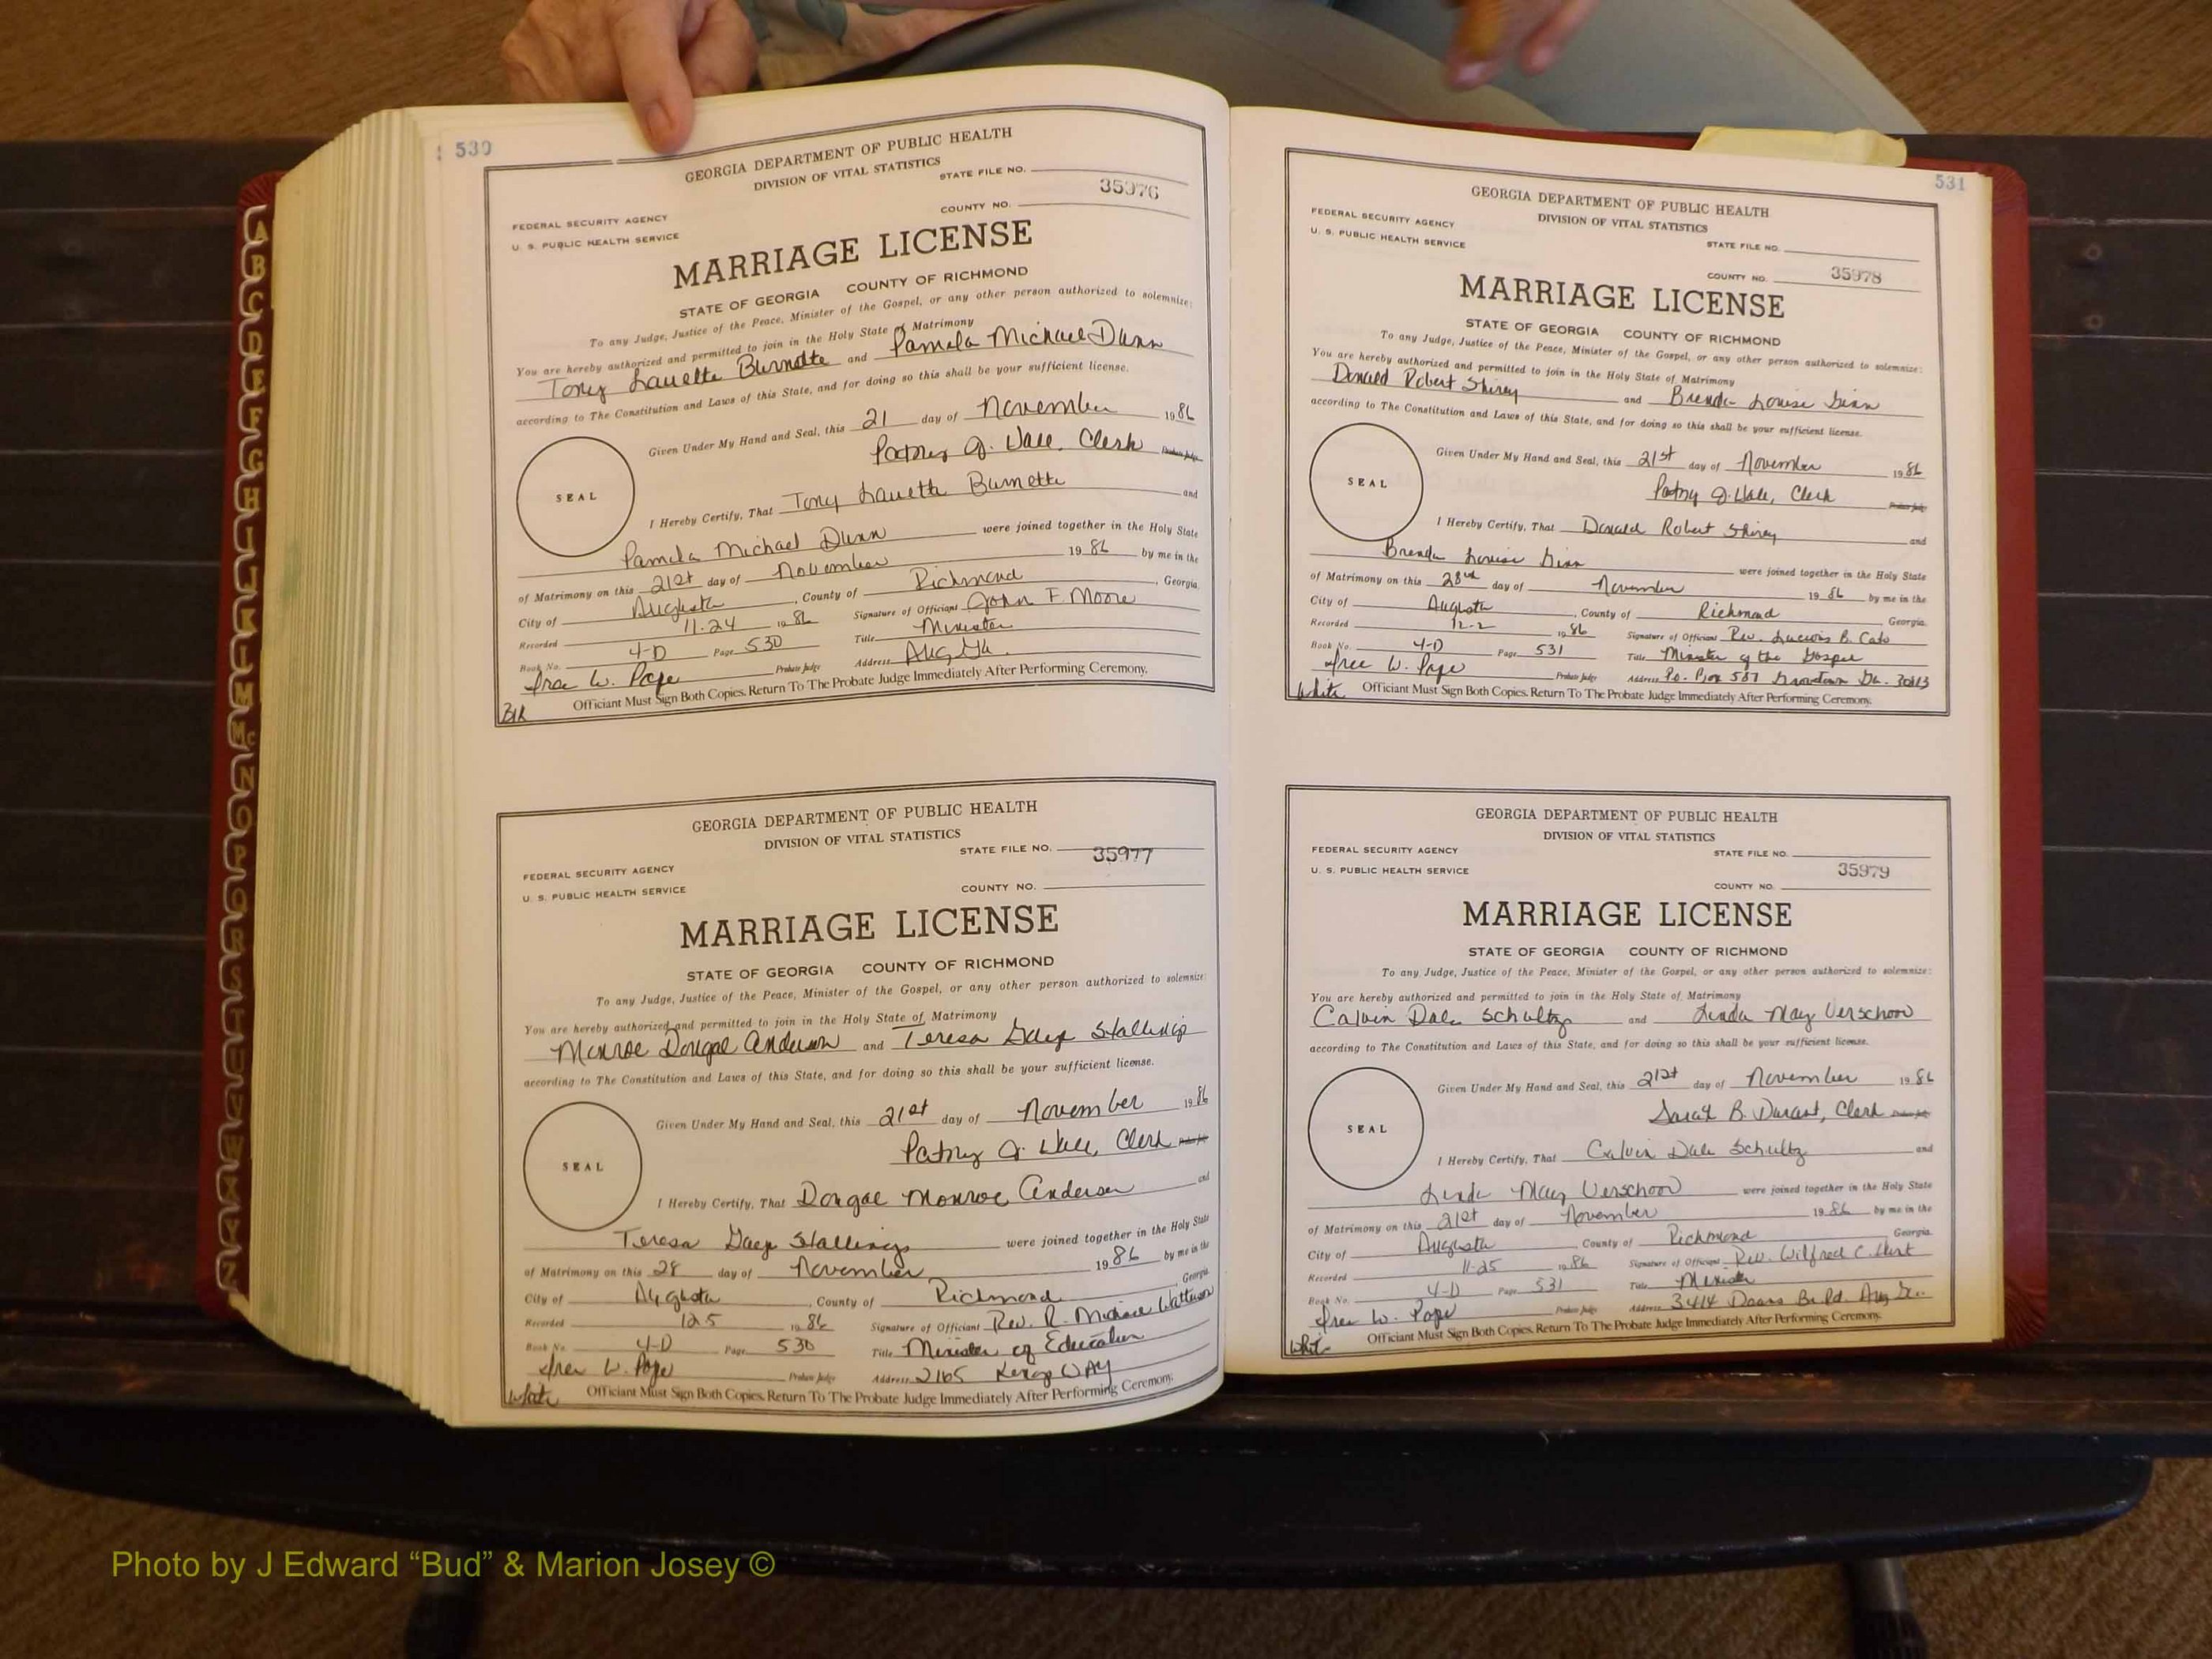 530
GEORGIA DEPARTMENT OF PUBLIC HEALTH
DIVISION OF VITAL STATISTICS
STATE FILE NO.
35976
FEDERAL SECURITY AGENCY
COUNTY NO.
U. S. PUBLIC HEALTH SERVICE
MARRIAGE LICENSE
STATE OF GEORGIA COUNTY OF RICHMOND
To any Judge, Justice of the Peace, Minister of the Gospel, or any other person authorized to solemnize:
You are hereby authorized and permitted to join in the Holy State of Matrimony
Tony Lauette Burnette and Pamela Michael Dunn
according to The Constitution and Laws of this State, and for doing so this shall be your sufficient license.
Given Under My Hand and Seal, this 21 day of November 1986
Clerk Probate Judge
SEAL
I Hereby Certify, That Tony Lauette Burnette and
Pamela Michael Dunn were joined together in the Holy State
of Matrimony on this 21st day of November 1986 by me in the
City of Augusta, County of Richmond, Georgia
Recorded 11-24 1986 Signature of Officiant John F. Moore
Book No. 4-D Page 530 Title Minister
W. Pope Probate Judge Address Aug, Ga.
Blk Officiant Must Sign Both Copies. Return To The Probate Judge Immediately After Performing Ceremony.
GEORGIA DEPARTMENT OF PUBLIC HEALTH
DIVISION OF VITAL STATISTICS
STATE FILE NO. 35977
FEDERAL SECURITY AGENCY
U. S. PUBLIC HEALTH SERVICE
COUNTY NO.
MARRIAGE LICENSE
STATE OF GEORGIA COUNTY OF RICHMOND
To any Judge, Justice of the Peace, Minister of the Gospel, or any other person authorized to solemnize:
You are hereby authorized and permitted to join in the Holy State of Matrimony
Monroe Dougal Anderson and Teresa Gaye Stallings
according to The Constitution and Laws of this State, and for doing so this shall be your sufficient license.
Given Under My Hand and Seal, this 21st day of November 1986
Clerk Probate Judge
SEAL
I Hereby Certify, That Monroe Anderson and
Teresa Gaye Stallings were joined together in the Holy State
of Matrimony on this 28 day of November 1986 by me in the
City of Augusta, County of Richmond, Georgia
Recorded 12-5 1986 Signature of Officiant Rev. R. Michael
Book No. 4-D Page 530 Title Minister of Education
W. Pope Probate Judge Address 2165 WAY
White Officiant Must Sign Both Copies. Return To The Probate Judge Immediately After Performing Ceremony.
531
GEORGIA DEPARTMENT OF PUBLIC HEALTH
DIVISION OF VITAL STATISTICS
FEDERAL SECURITY AGENCY
U. S. PUBLIC HEALTH SERVICE
STATE FILE NO.
COUNTY NO. 35978
MARRIAGE LICENSE
STATE OF GEORGIA COUNTY OF RICHMOND
To any Judge, Justice of the Peace, Minister of the Gospel, or any other person authorized to solemnize:
You are hereby authorized and permitted to join in the Holy State of Matrimony
Donald Robert Shirey and Brenda Louise Ginn
according to The Constitution and Laws of this State, and for doing so this shall be your sufficient license.
Given Under My Hand and Seal, this 21st day of November 1986
Clerk Probate Judge
SEAL
I Hereby Certify, That Donald Robert Shirey and
Brenda Louise Ginn were joined together in the Holy State
of Matrimony on this 28th day of November 1986 by me in the
City of Augusta, County of Richmond Georgia
Recorded 12-2 1986 Signature of Officiant Rev. B. Cato
Book No. 4-D Page 531 Title Minister of the Gospel
W. Pope Probate Judge Address P.O. Box 587 Grovetown Ga. 30813
White Officiant Must Sign Both Copies. Return To The Probate Judge Immediately After Performing Ceremony.
GEORGIA DEPARTMENT OF PUBLIC HEALTH
DIVISION OF VITAL STATISTICS
FEDERAL SECURITY AGENCY
STATE FILE NO.
U. S. PUBLIC HEALTH SERVICE
35979
COUNTY NO.
MARRIAGE LICENSE
STATE OF GEORGIA COUNTY OF RICHMOND
To any Judge, Justice of the Peace, Minister of the Gospel, or any other person authorized to solemnize:
You are hereby authorized and permitted to join in the Holy State of Matrimony
Calvin Dale Schultz and Linda May Verschoor
according to The Constitution and Laws of this State, and for doing so this shall be your sufficient license.
Given Under My Hand and Seal, this 21st day of November 1986
Sarah B. Durant, Clerk Probate Judge
SEAL
I Hereby Certify, That Calvin Dale Schultz and
Linda May Verschoor were joined together in the Holy State
of Matrimony on this 21st day of November 1986 by me in the
City of Augusta, County of Richmond Georgia
Recorded 11-25 1986 Signature of Officiant Rev. Wilfred C.
Book No. 4-D Page 531 Title Minister
W. Pope Probate Judge Address 3414
White Officiant Must Sign Both Copies. Return To The Probate Judge Immediately After Performing Ceremony.
A
B
C
D
E
F
G
H
M
Mc
N
O
P
Photo by J Edward “Bud” & Marion Josey ©